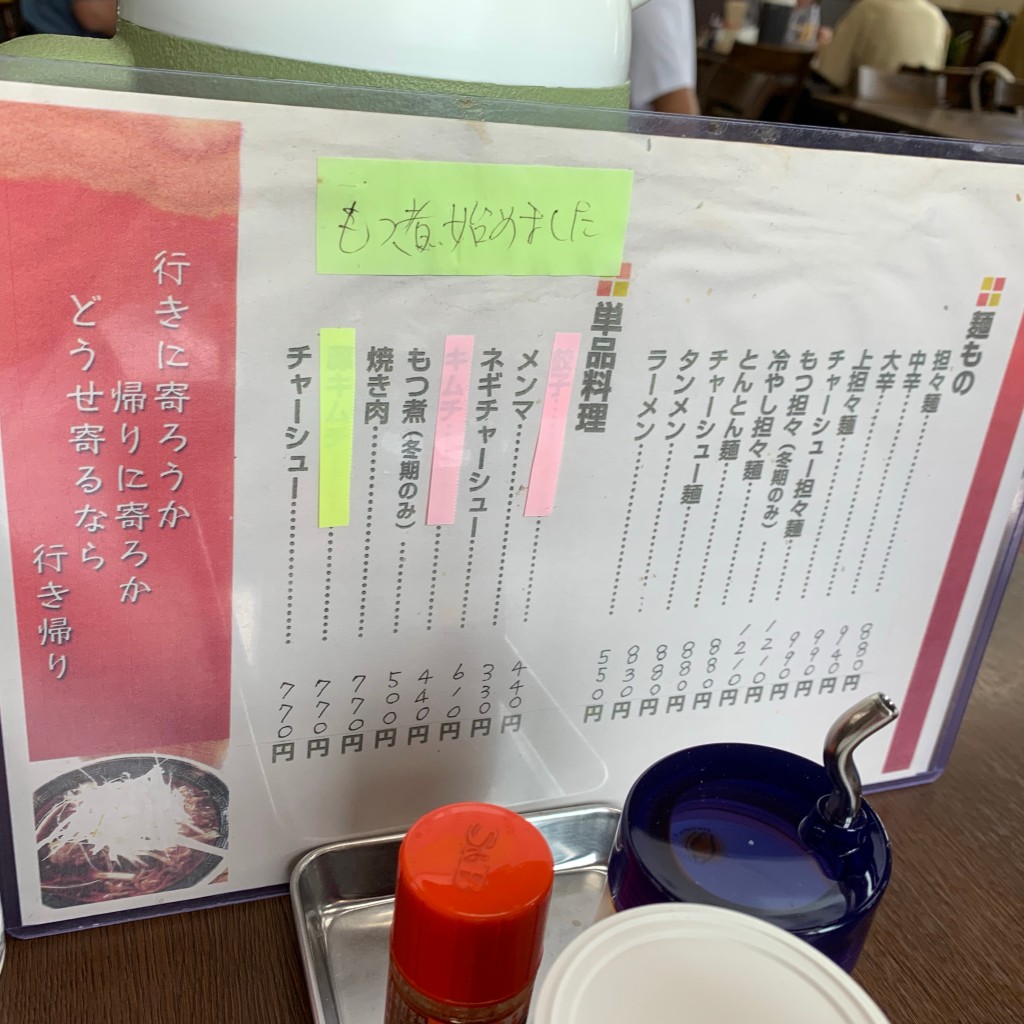 もつ煮始めました
麺もの
担々麺……880円
中辛……940円
大辛……990円
上担々麺……990円
チャーシュー担々麺……1210円
もつ担々（冬期のみ）……1210円
冷やし担々麺……880円
とんとん麺……880円
チャーシュー麺……880円
タンメン……830円
ラーメン……550円
単品料理
餃子……440円
メンマ……330円
ネギチャーシュー……610円
キムチ……440円
もつ煮（冬期のみ）……500円
焼き肉……770円
豚キムチ……770円
チャーシュー……770円
行きに寄ろうか
帰りに寄ろか
どうせ寄るなら
行き帰り
S&B